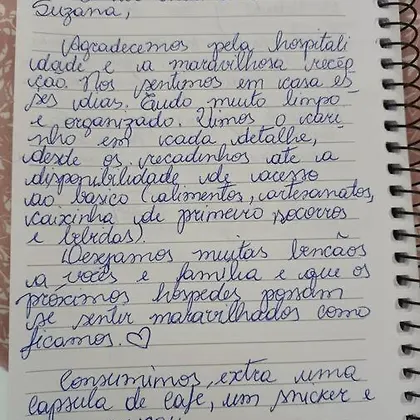 Suzana,
Agradecemos pela hospitali
dade e a maravilhosa recep
ção. Nos sentimos em casa es
ses dias. Tudo muito limpo
e organizado. Vimos o cari
nho em cada detalhe,
desde os recadinhos até a
disponibilidade de acesso
ao básico (alimentos, artesanatos,
caixinha de primeiro socorros
e bebidas).
Desejamos muitas bençãos
a vocês e família e que os
próximos hóspedes possam
se sentir maravilhados como
ficamos. ♡
Consumimos, extra uma
capsula de cafe, um snicker e